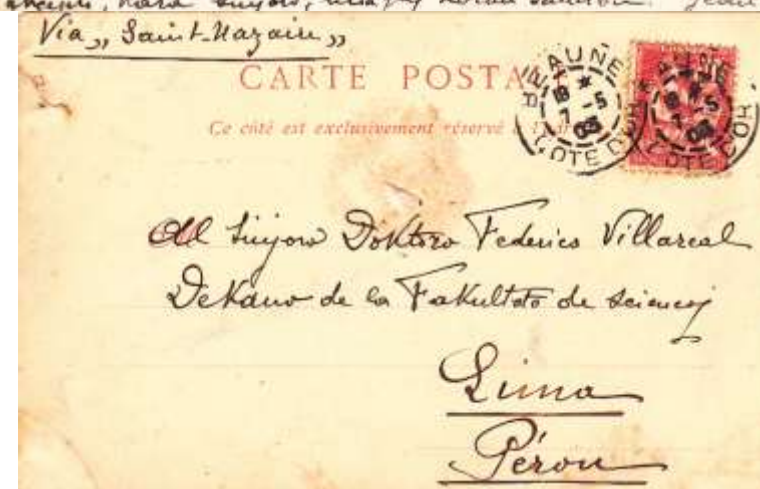 kara sinjoro,
Via „ Saint-Nazaire „
CARTE POSTA
Ce côté est exclusivement réservé à
BEAUNE
18 *
7 -5
03
COTE D'OR
BEAUNE
7 -5
03
COTE D'OR
Al Sinjoro Doktoro Federico Villareal
Dekano de la Fakultato de sciencoj
Lima
Pérou